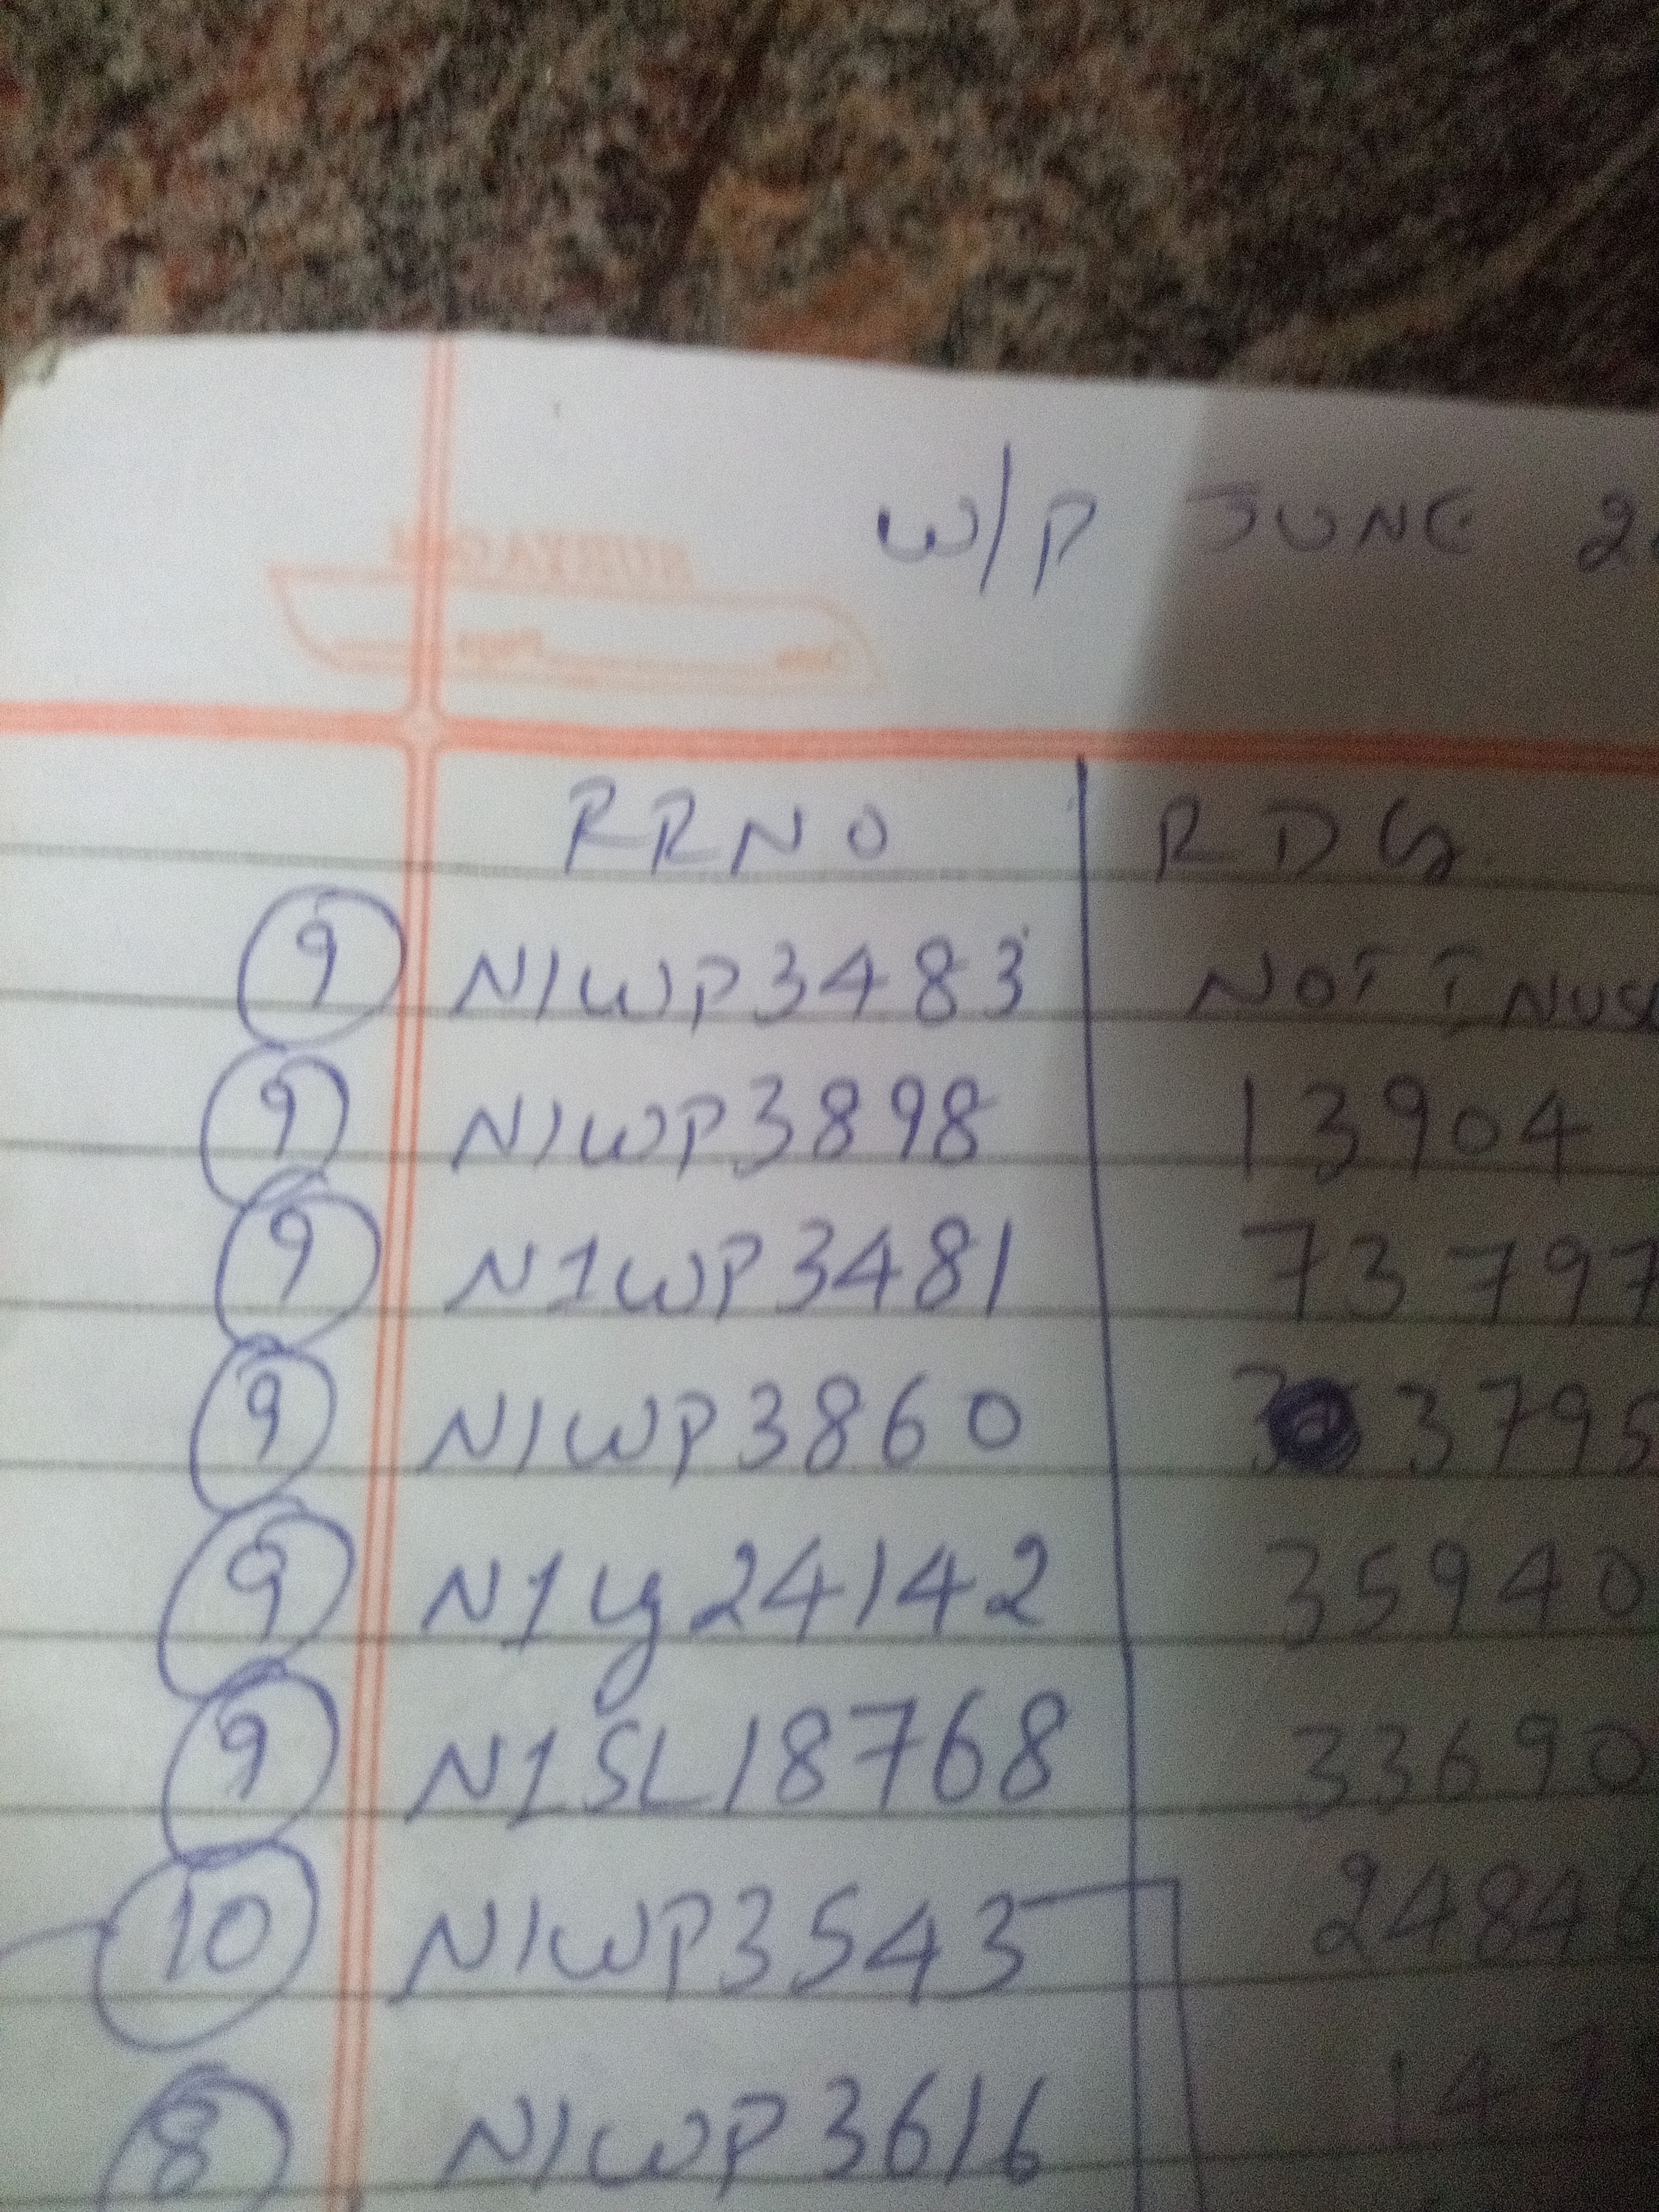 W/P JUNE
RRNO RDG
9 N1WP3483 NOT INUSE
9 N1WP3898 13904
9 N1WP3481 73797
9 N1WP3860 3 3795
9 N1Ly24142 35940
9 N1SL18768 33690
10 N1WP3543 2484
8 N1WP3616 147